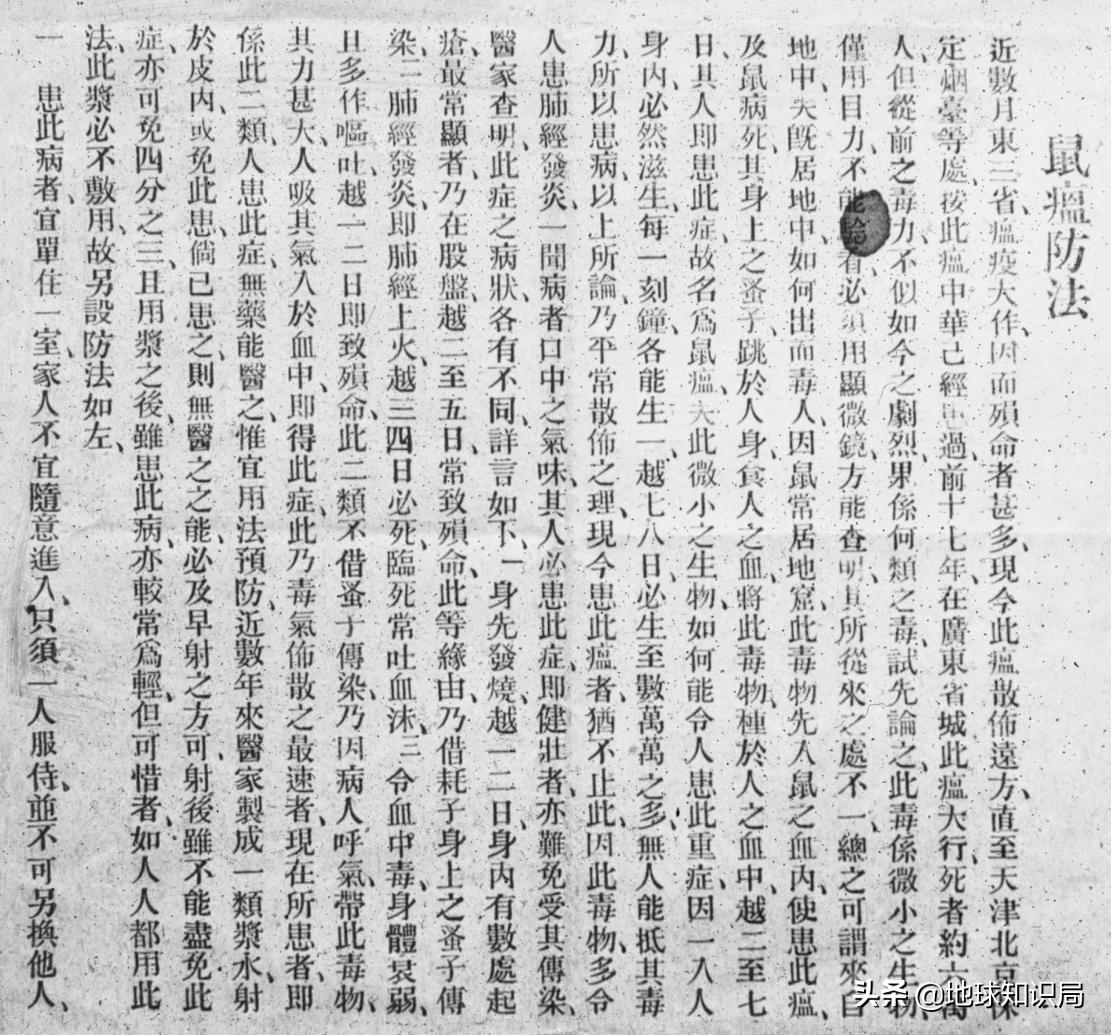 鼠瘟防法
近數月東三省瘟疫大作、因而殞命者甚多、現今此瘟散佈遠方、直至天津北京保
定烟臺等處、按此瘟中華己經患過、前十七年、在廣東省城此瘟大行、死者約六萬
人、但從前之毒力、不似如今之劇烈、果係何類之毒、試先論之、此毒係微小之生物、
僅用目力、不能驗看、必須用顯微鏡、方能查明、其所從來之處不一、總之可謂來自
地中、夫旣居地中、如何出而毒人、因鼠常居地窟、此毒物先入鼠之血內、使患此瘟、
及鼠病死、其身上之蚤子、跳於人身、食人之血、將此毒物、種於人之血中、越二至七
日、其人即患此症、故名爲鼠瘟、夫此微小之生物、如何能令人患此重症、因一入人
身內、必然滋生、每一刻鐘、各能生一、越七八日、必生至數萬萬之多、無人能抵其毒
力、所以患病、以上所論、乃平常散佈之理、現今患此瘟者、猶不止此、因此毒物、多令
人患肺經發炎、一聞病者口中之氣味、其人必患此症、即健壯者、亦難免受其傳染、
醫家查明、此症之病狀、各有不同、詳言如下、一身先發燒、越一二日、身內有數處起
瘡、最常顯者、乃在股盤、越二至五日、常致殞命、此等緣由、乃借耗子身上之蚤子傳
染、二肺經發炎、即肺經上火、越三四日必死、臨死常吐血沫、三令血中毒、身體衰弱、
且多作嘔吐、越一二日即致殞命、此二類不借蚤子傳染、乃因病人呼氣、帶此毒物、
其力甚大、人吸其氣入於血中、即得此症、此乃毒氣佈散之最速者、現在所患者、即
係此二類、人患此症、無藥能醫之、惟宜用法預防、近數年來醫家製成一類漿水、射
於皮內、或免此患、倘己患之、則無醫之之能、必及早射之方可、射後雖不能盡免此
症、亦可免四分之三、且用漿之後、雖患此病、亦較常爲輕、但可惜者、如人人都用此
法、此漿必不敷用、故另設防法如左、
一　患此病者、宜單住一室、家人不宜隨意進入、只須一人服侍、並不可另換他人、
头条 @地球知识局